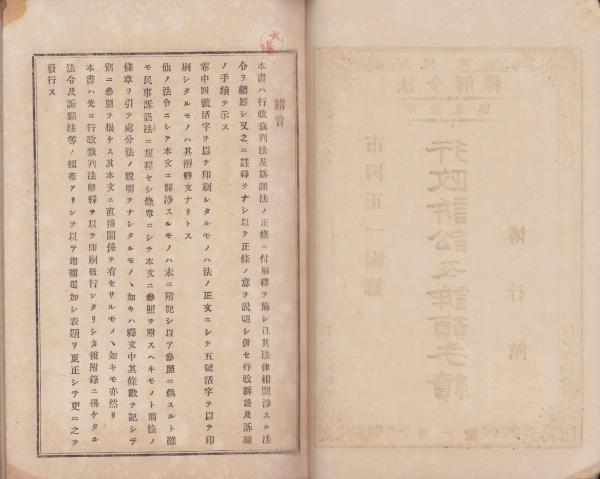 緒言
本書ハ行政裁判法及訴願法ノ正條ニ付解釋ヲ施シ且其法律相關渉スル法
令ヲ網羅シ又之ニ註釋ヲナシ以テ正條ノ意ヲ説明シ併セ行政訴訟及訴願
ノ手續ヲ示ス
卷中四號活字ヲ以テ印刷シタルモノハ法ノ正文ニシテ五號活字ヲ以テ印
刷シタルモノハ其解釋文ナリトス
他ノ法令ニシテ本文ニ關渉スルモノハ末ニ附記シ以テ參照ニ供スルト雖
モ民事訴訟法ニ規程セシ條章ニシテ本文ニ參照ヲ附スヘキモノト刑法ノ
條章ヲ引テ處分法ノ説明ヲナシタルモノヽ如キハ釋文中其條數ヲ記シテ
別ニ參照ヲ揭ケス其本文ニ直接關係ヲ有セサルモノヽ如キモ亦然リ
本書ハ先ニ行政裁判法解釋ヲ以テ印刷發行シタリシカ後附録ニ揭ケタル
法令及訴願法等ノ頒布アリシヲ以テ増補追加シ表題ヲ更正シテ更ニ之ヲ
發行ス
法令解釋
行政訴訟及訴願手續
市岡正一編纂
博行館